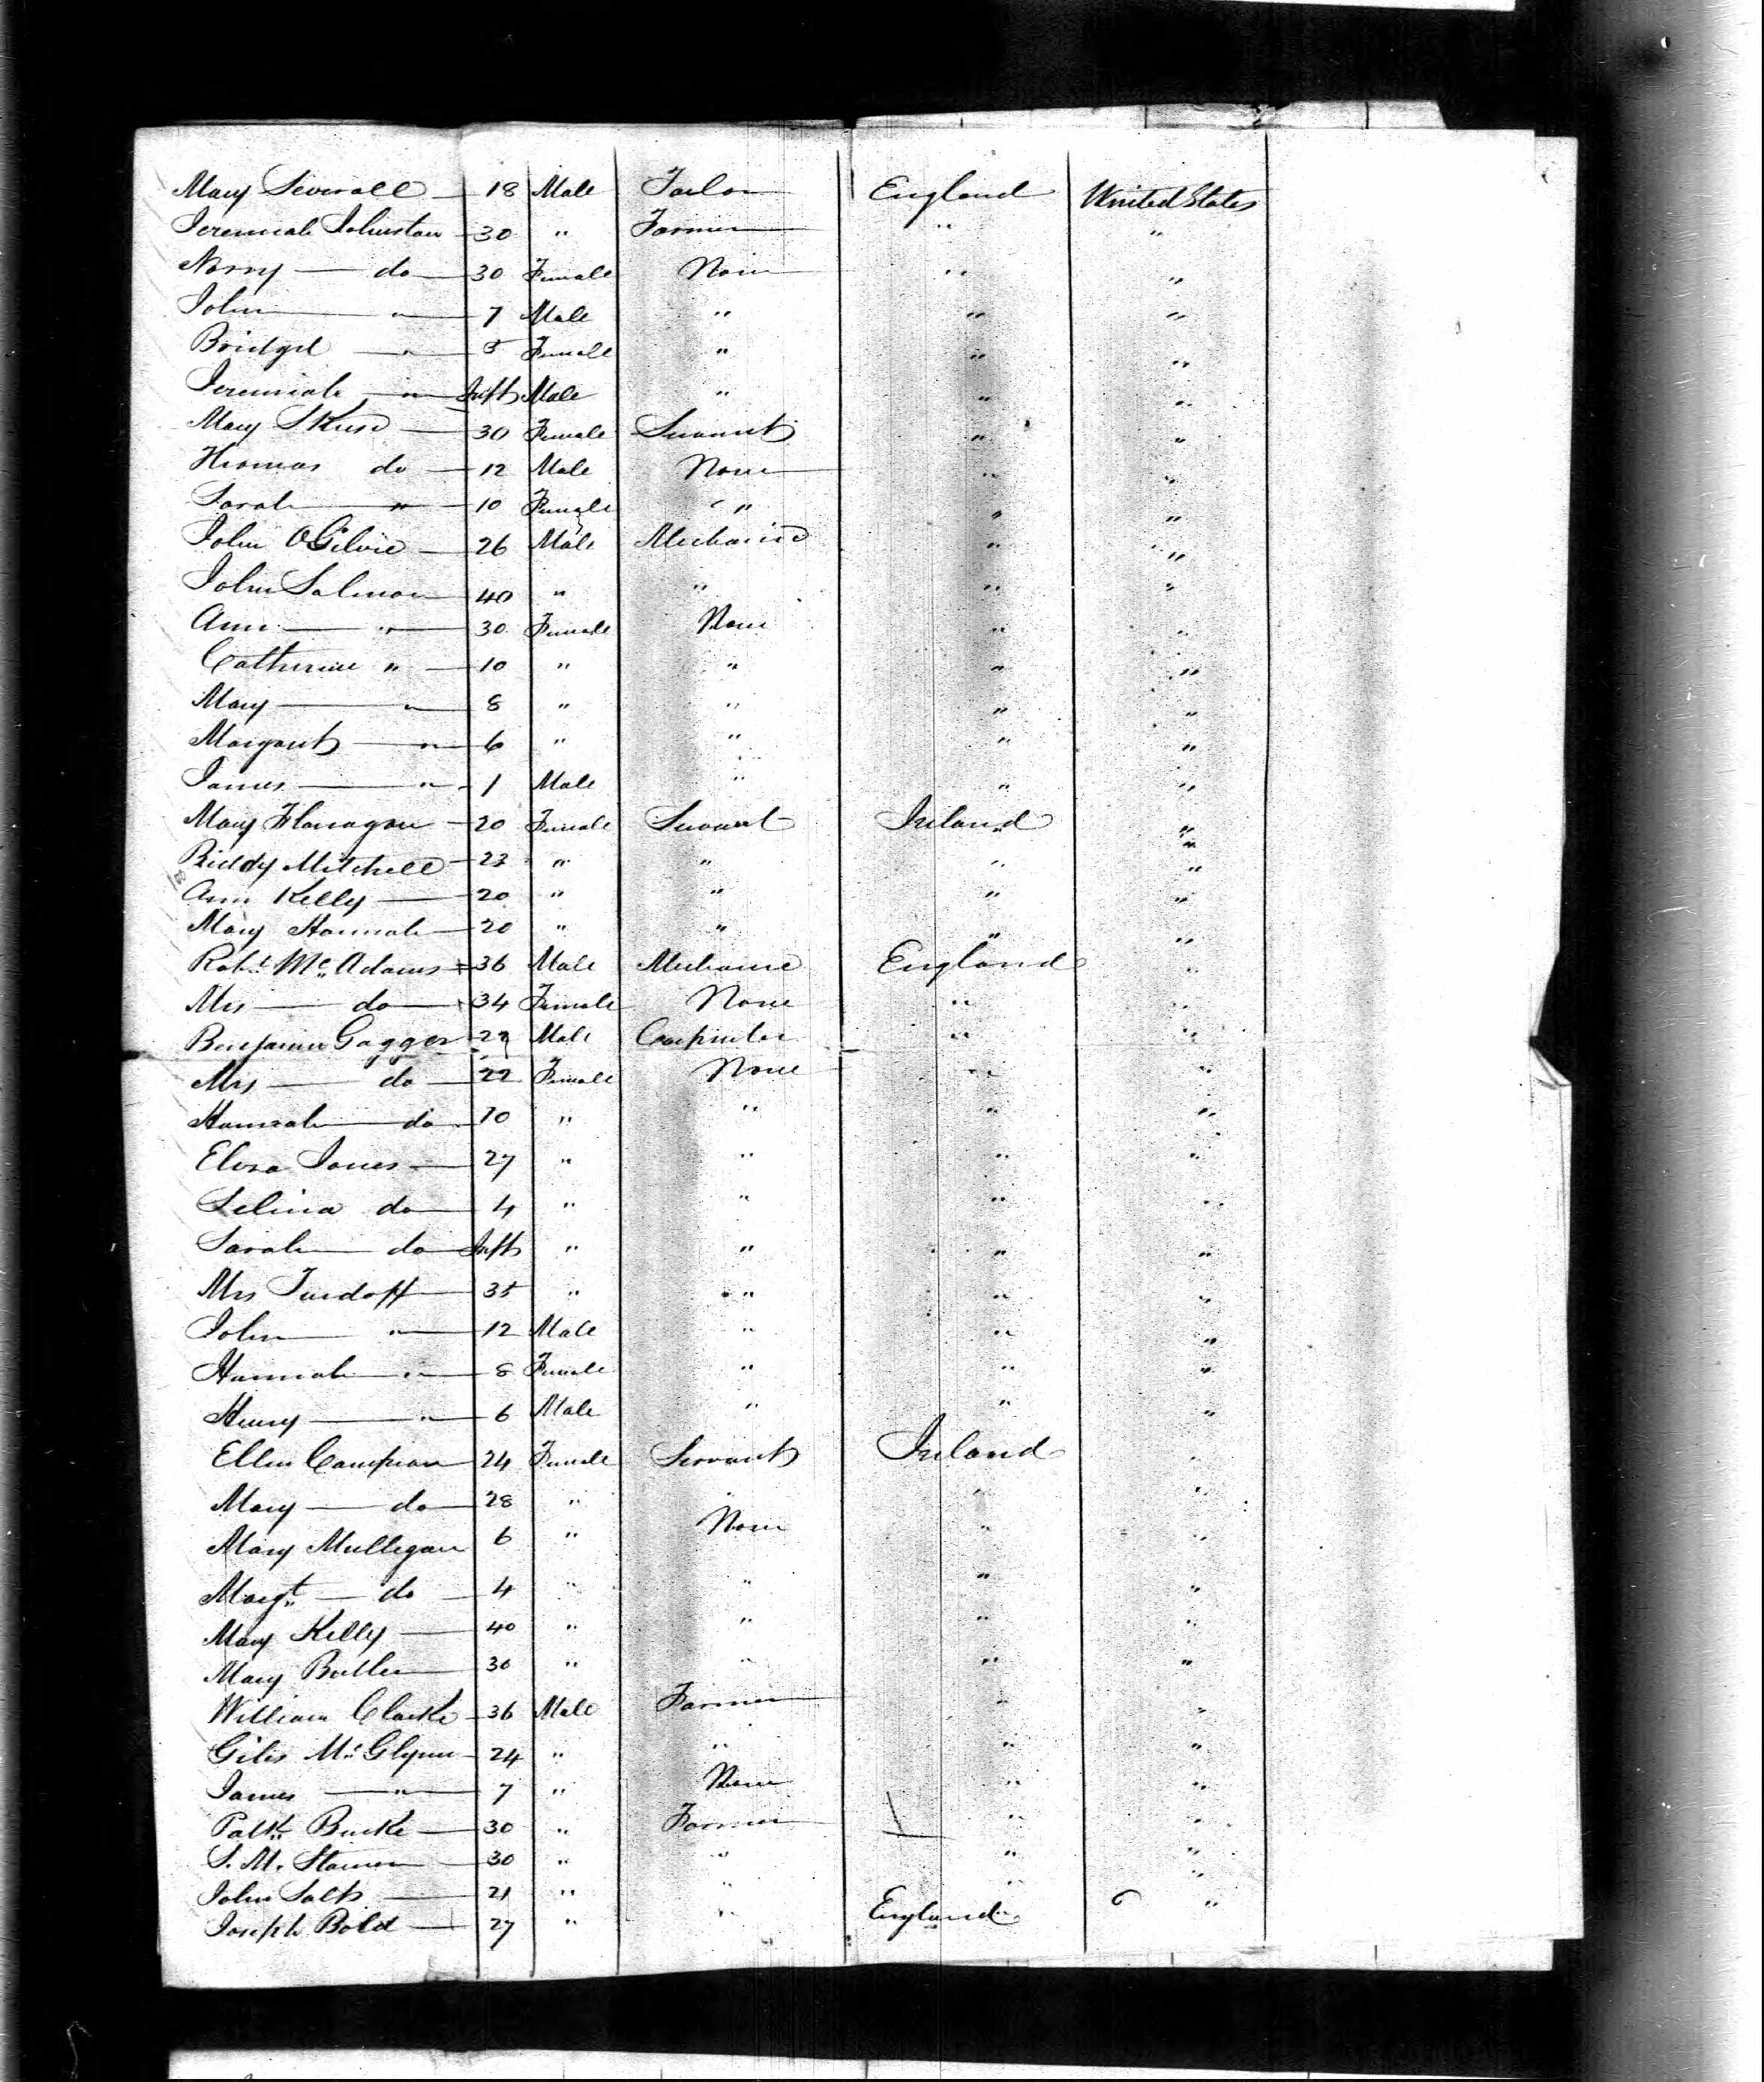 Mary Leverall — 18 Male Tailor England United States
Jeremiah Johnston 30 " Farmer " "
Norry — do — 30 Female None " "
John — " — 7 Male " " "
Bridget — " — 5 Female " " "
Jeremiah — " — Inft Male " " "
Mary Skuse — 30 Female Servant " "
Thomas do — 12 Male None " "
Sarah — " — 10 Female " " "
John OGilvie — 26 Male Mechanic " "
John Salmon — 40 " " " "
Ann — " — 30 Female None " "
Catherine " — 10 " " " "
Mary — " — 8 " " " "
Margaret — " — 6 " " " "
James — " — 1 Male " " "
Mary Flanagan — 20 Female Servant Ireland "
Biddy Mitchell — 23 " " " "
Ann Kelly — 20 " " " "
Mary Hannah — 20 " " " "
Robt. Mc. Adams — 36 Male Mechanic England "
Mrs — do — 34 Female None " "
Benjamin Gagger 22 Male Carpenter " "
Mrs — do — 22 Female None " "
Hannah — do 10 " " " "
Eliza Jones — 27 " " " "
Selina do — 4 " " " "
Sarah — do Inft " " " "
Mrs Turdoff — 35 " " " "
John " — 12 Male " " "
Hannah " — 8 Female " " "
Henry — " — 6 Male " " "
Ellen Campion 24 Female Servant Ireland "
Mary — do — 28 " " " "
Mary Mulligan 6 " None " "
Margt — do — 4 " " " "
Mary Kelly — 40 " " " "
Mary Butler 30 " " " "
William Clarke — 36 Male Farmer " "
Gilis Mc Glynn — 24 " " " "
James — " — 7 " None " "
Patk Burke — 30 " Farmer " "
S. M. — 30 " " " "
John Salt — 21 " " " "
Joseph Bold — 27 " " England "